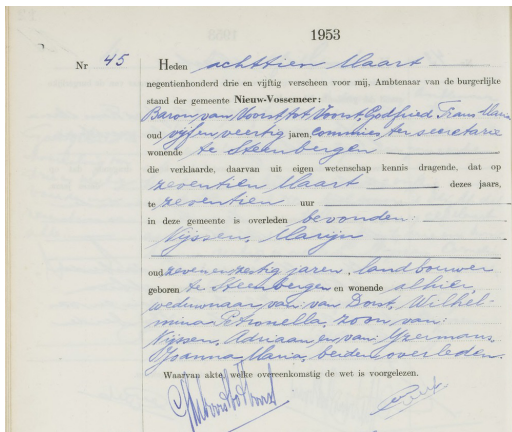 1953
Nr 45 Heden achttien Maart
negentienhonderd drie en vijftig verscheen voor mij, Ambtenaar van de burgerlijke
stand der gemeente Nieuw-Vossemeer:
Baron van Voorst tot Voorst, Godfried Frans Maria
oud vijf en veertig jaren, commies ter secretarie
wonende te Steenbergen
die verklaarde, daarvan uit eigen wetenschap kennis dragende, dat op
zeventien Maart dezes jaars,
te zeventien uur
in deze gemeente is overleden bevonden:
Nijssen, Marijn
oud zevenenzestig jaren, landbouwer
geboren te Steenbergen en wonende alhier,
weduwnaar van: van Dorst, Wilhel-
mina Petronella, zoon van:
Nijssen, Adriaan en van: IJzermans
Joanna Maria, beiden overleden.
Waarvan akte, welke overeenkomstig de wet is voorgelezen.